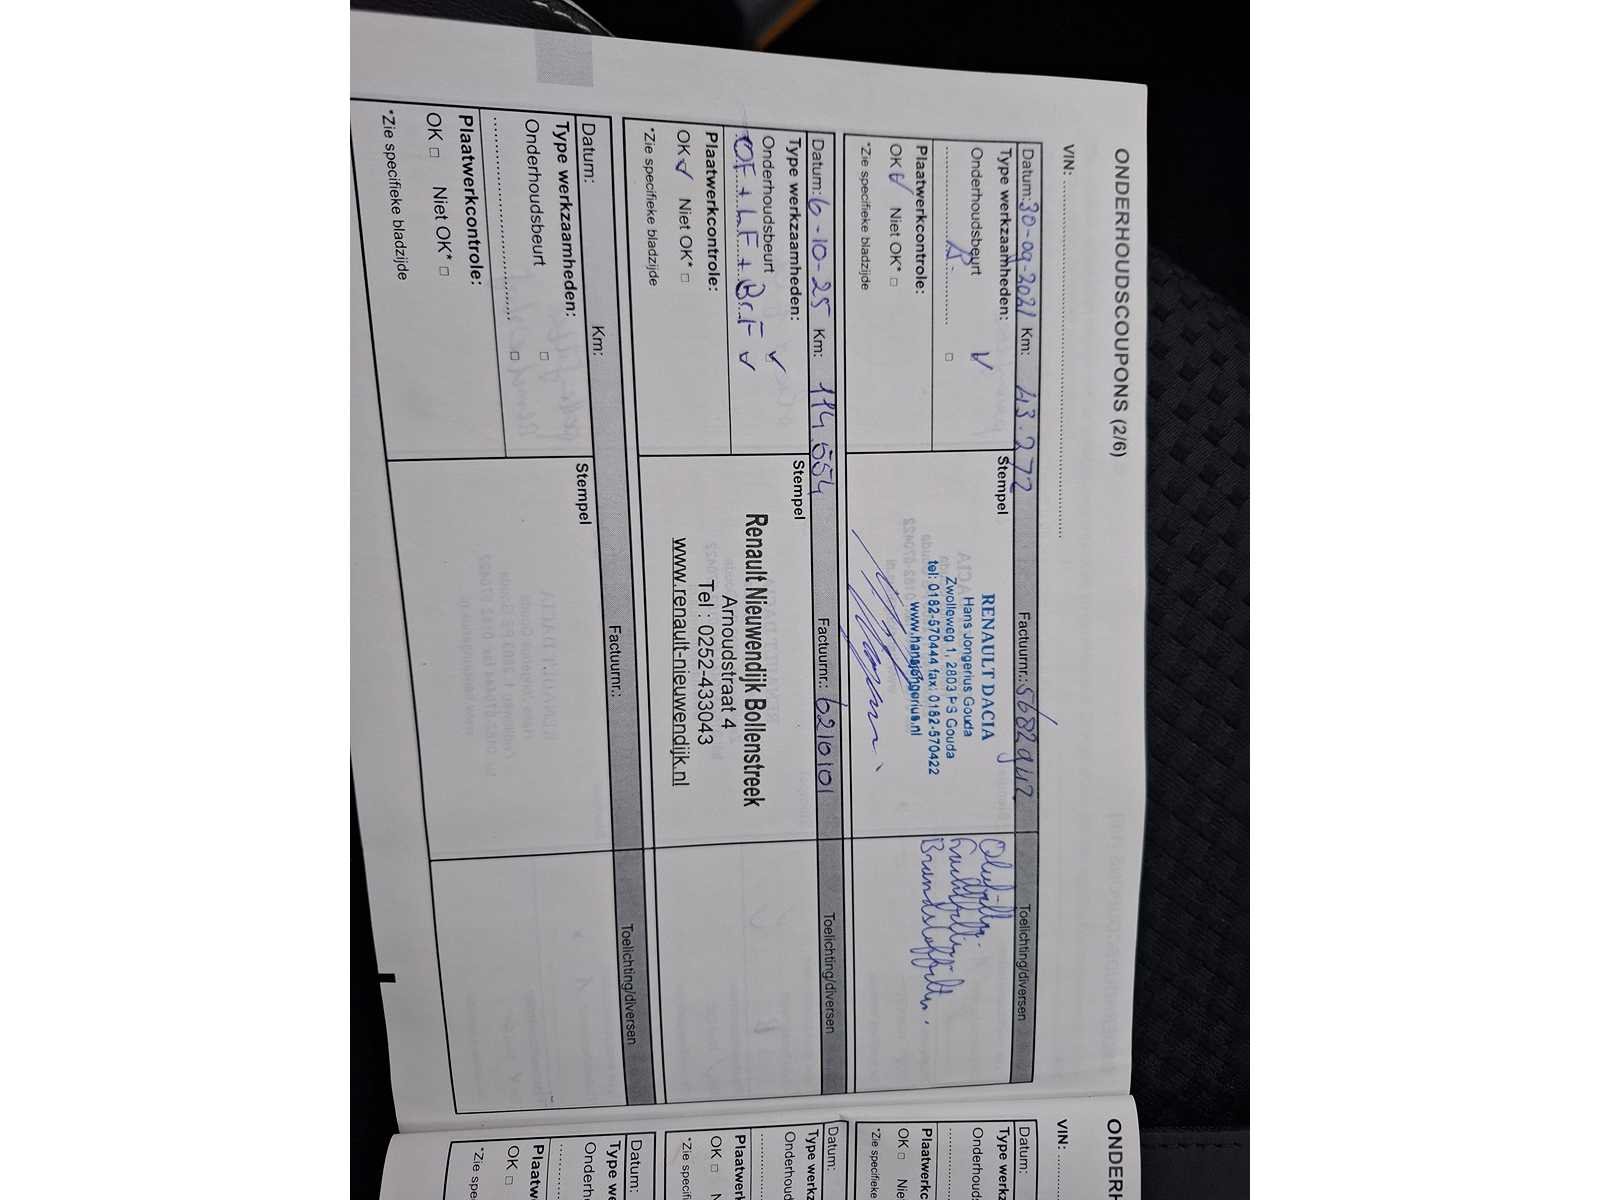 ONDERHOUDSCOUPONS (2/6)
VIN:
Datum: 30-09-2021 Km: 43.272 Factuurnr.: Toelichting/diversen
Type werkzaamheden: Stempel
Onderhoudsbeurt ✓
A □
Plaatwerkcontrole:
OK ✓ Niet OK* □
*Zie specifieke bladzijde
RENAULT DACIA
Hans Jongerius Gouda
Zwolleweg 1, 2803 PS Gouda
tel: 0182-570444 fax: 0182-570422
www.hansjongerius.nl
Oliefilter
Luchtfilter
Brandstoffilter.
Datum: 6-10-25 Km: 114.554 Factuurnr.: 6210101 Toelichting/diversen
Type werkzaamheden: Stempel
Onderhoudsbeurt ✓
OF + LF + BrF ✓
Plaatwerkcontrole:
OK ✓ Niet OK* □
*Zie specifieke bladzijde
Renault Nieuwendijk Bollenstreek
Arnoudstraat 4
Tel : 0252-433043
www.renault-nieuwendijk.nl
Datum: Km: Factuurnr.: Toelichting/diversen
Type werkzaamheden: Stempel
Onderhoudsbeurt □
□
Plaatwerkcontrole:
OK □ Niet OK* □
*Zie specifieke bladzijde
ONDERH
VIN:
Datum:
Type werkz
Onderhouds
Plaatwerkco
OK □ Niet
*Zie specifieke
Datum:
Type werkz
Onderhoud
Plaatwerk
OK □ N
*Zie specifi
Datum:
Type we
Onderh
Plaatw
OK □
*Zie spe